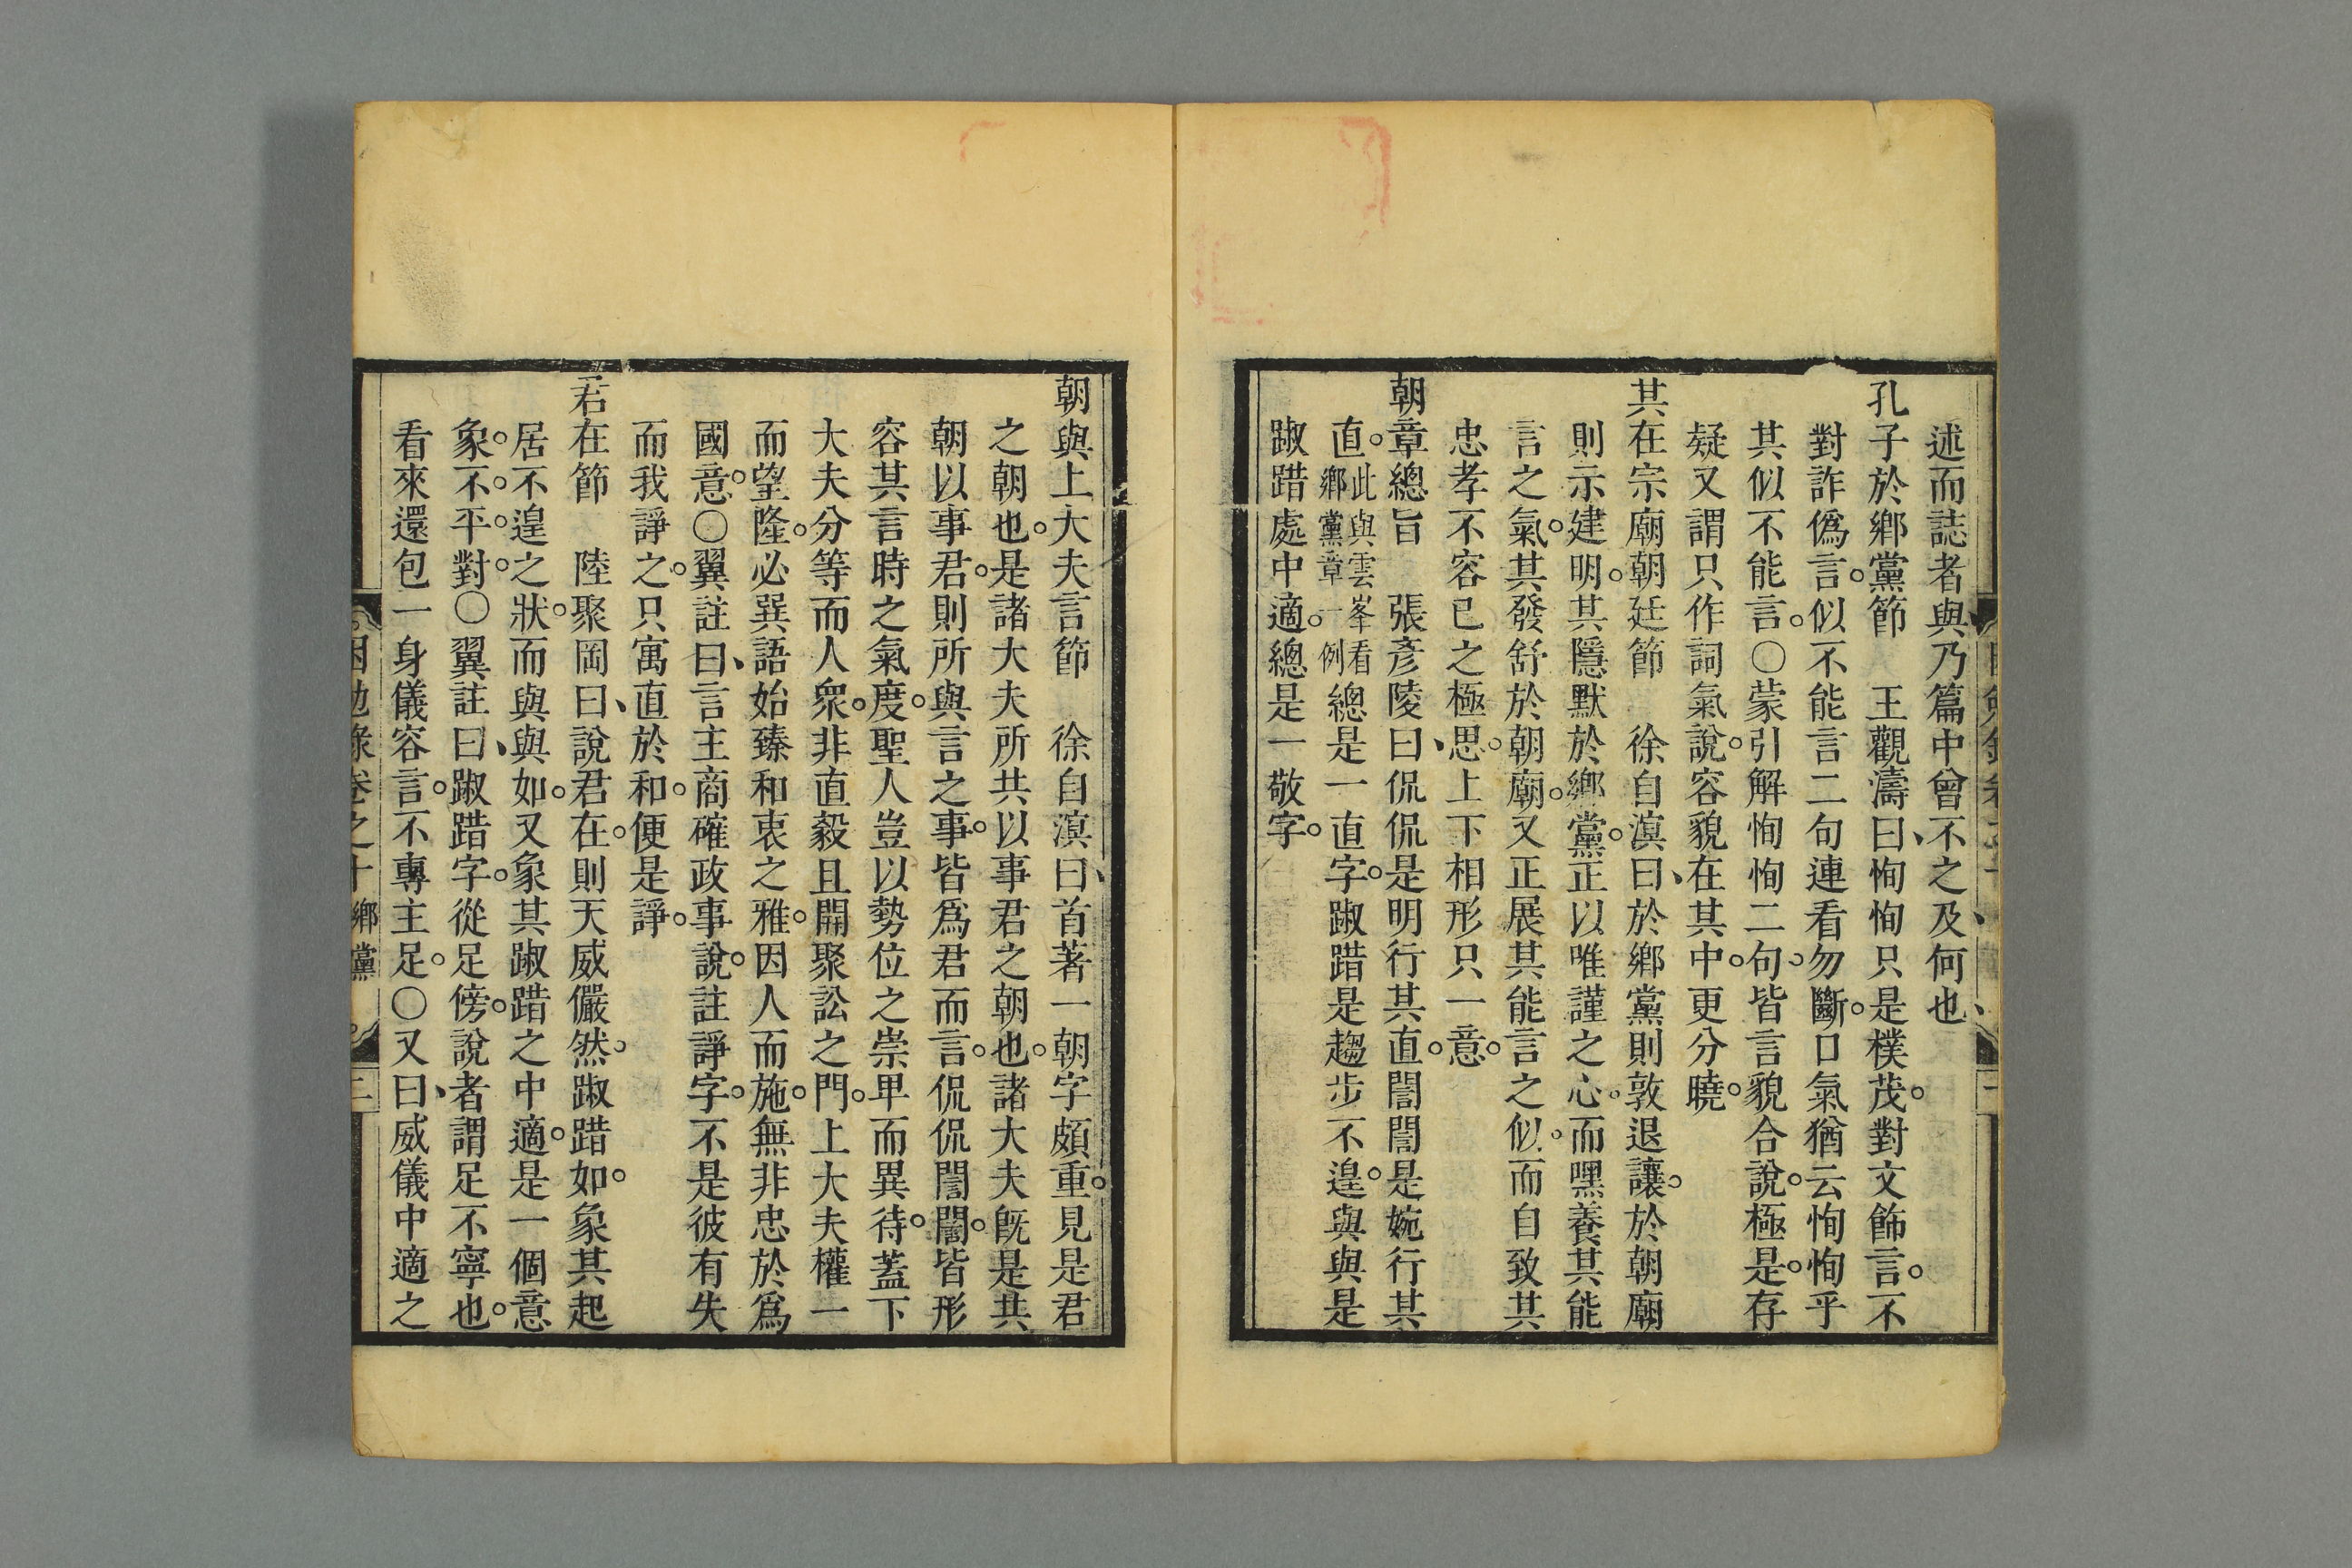 述而誌者與乃篇中曾不之及何也
孔子於鄉黨節　王觀濤曰恂恂只是樸茂對文飾言不
對詐僞言似不能言二句連看勿斷口氣猶云恂恂乎
其似不能言○蒙引解恂恂二句皆言貌合說極是存
疑又謂只作詞氣說容貌在其中更分曉
其在宗廟朝廷節　徐自溟曰於鄉黨則敦退讓於朝廟
則示建明其隱默於鄉黨正以唯謹之心而嘿養其能
言之氣其發舒於朝廟又正展其能言之似而自致其
忠孝不容已之極思上下相形只一意
朝章總旨　張彥陵曰侃侃是明行其直誾誾是婉行其
直此與雲峯看鄉黨章一例總是一直字踧踖是趨步不遑與與是
踧踖處中適總是一敬字
朝與上大夫言節　徐自溟曰首著一朝字頗重見是君
之朝也是諸大夫所共以事君之朝也諸大夫既是共
朝以事君則所與言之事皆爲君而言侃侃誾誾皆形
容其言時之氣度聖人豈以勢位之崇卑而異待蓋下
大夫分等而人衆非直毅且開聚訟之門上大夫權一
而望隆必巽語始臻和衷之雅因人而施無非忠於爲
國意○翼註曰言主商確政事說註諍字不是彼有失
而我諍之只寓直於和便是諍
君在節　陸聚岡曰說君在則天威儼然踧踖如象其起
居不遑之狀而與與如又象其踧踖之中適是一個意
象不平對○翼註曰踧踖字從足傍說者謂足不寧也
看來還包一身儀容言不專主足○又曰威儀中適之
困勉錄卷之十　鄉黨　二